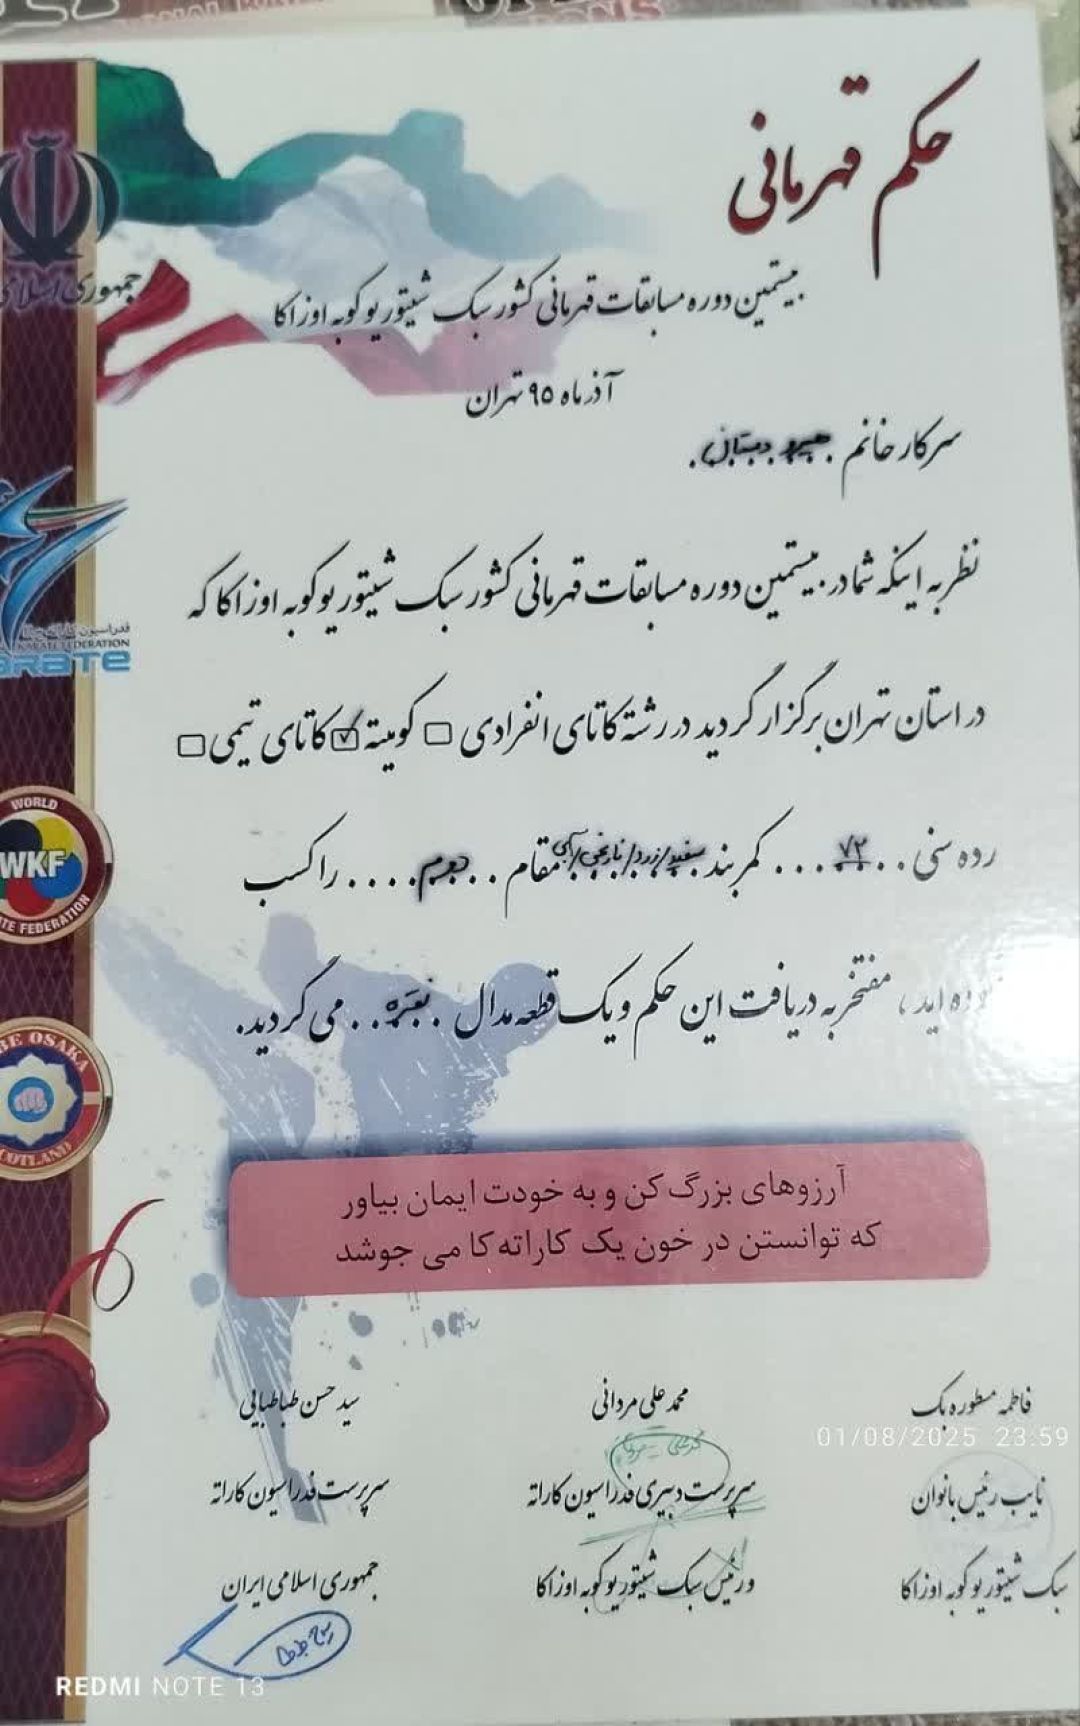 حکم قهرمانی
بیستمین دوره مسابقات قهرمانی کشور سبک شیتوریو کوبه اوزاکا
آذر ماه ۹۵ تهران
سرکار خانم
نظر به اینکه شما در بیستمین دوره مسابقات قهرمانی کشور سبک شیتوریو کوبه اوزاکا که
در استان تهران برگزار گردید در رشته کاتای انفرادی □ کومیته ☑ کاتای تیمی □
رده سنی ..۷۳.... کمربند سفید/زرد/نارنجی/آبی مقام ..دوم.... را کسب
اید، مفتخر به دریافت این حکم و یک قطعه مدال .نقره.. می گردید.
آرزوهای بزرگ کن و به خودت ایمان بیاور
که توانستن در خون یک کاراته کا می جوشد
فاطمه مطوره بک
نایب رئیس بانوان
سبک شیتوریو کوبه اوزاکا
محمد علی مردانی
سرپرست دبیری فدراسیون کاراته
و رئیس سبک شیتوریو کوبه اوزاکا
سید حسن طباطبایی
سرپرست فدراسیون کاراته
جمهوری اسلامی ایران
جمهوری اسلامی
KARATE FEDERATION
WORLD
WKF
TE FEDERATION
BE OSAKA
COTLAND
01/08/2025 23:59
REDMI NOTE 13